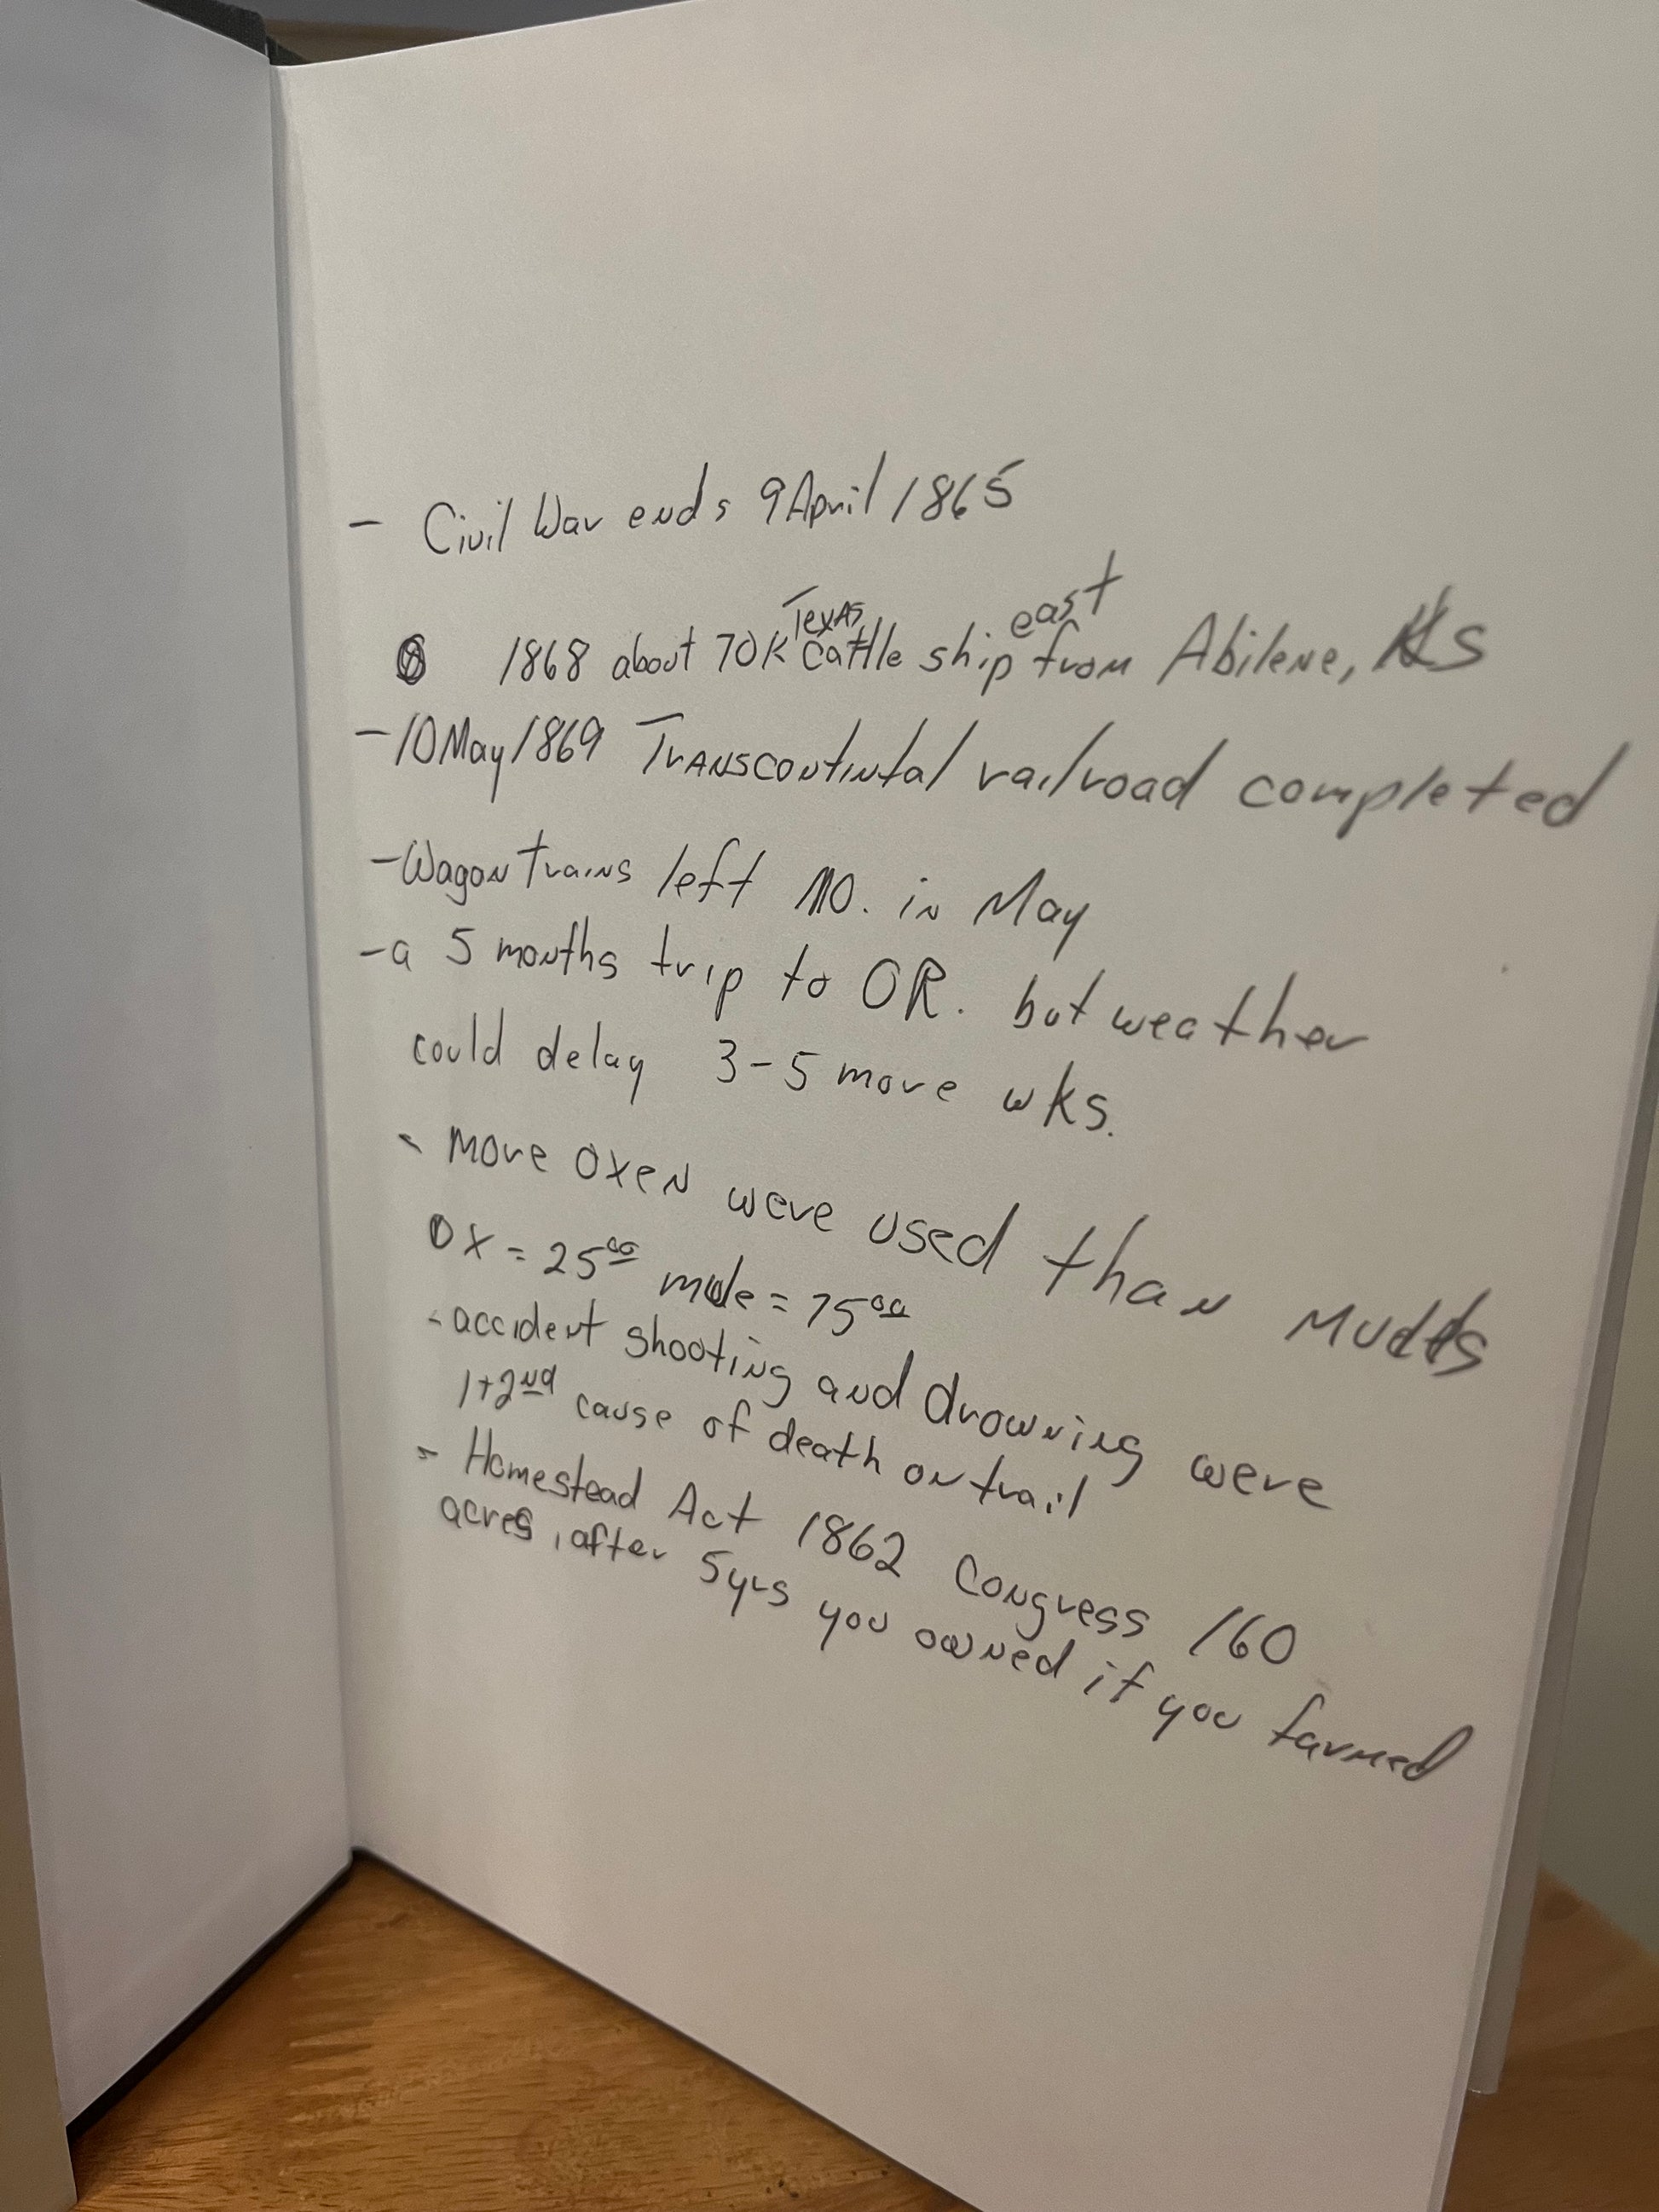 - Civil War ends 9 April 1865
1868 about 70K Texas cattle ship east from Abilene, KS
- 10 May 1869 Transcontintal railroad completed
- Wagon trains left MO. in May
- a 5 months trip to OR. but weather
could delay 3-5 more wks.
- More oxen were used than
OX = 25⁰⁰ mule = 75⁰⁰
- accident shooting and drowning were
1+2nd cause of death on trail
- Homestead Act 1862 Congress 160
acres, after 5yrs you owned if you farmed